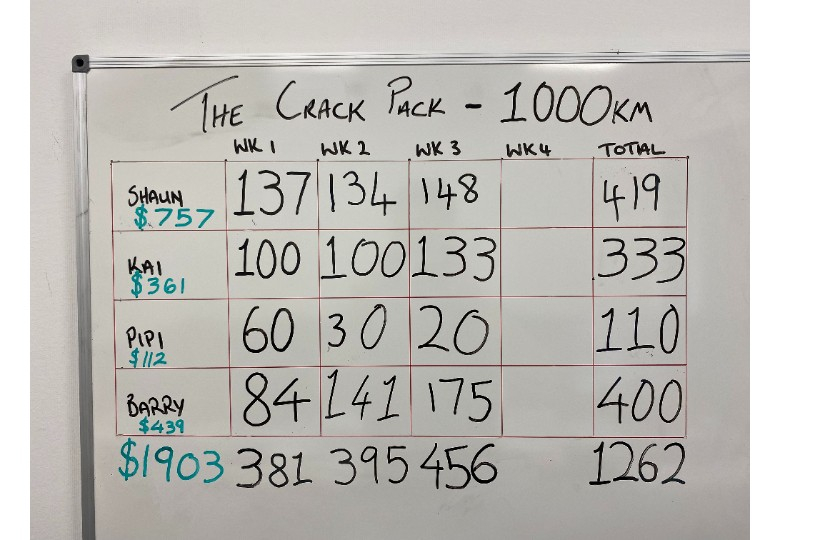 THE CRACK PACK - 1000KM
WK 1 WK 2 WK 3 WK 4 TOTAL
SHAUN 137 134 148 419
$757
KAI 100 100 133 333
$361
PIPI 60 30 20 110
$112
BARRY 84 141 175 400
$439
$1903 381 395 456 1262